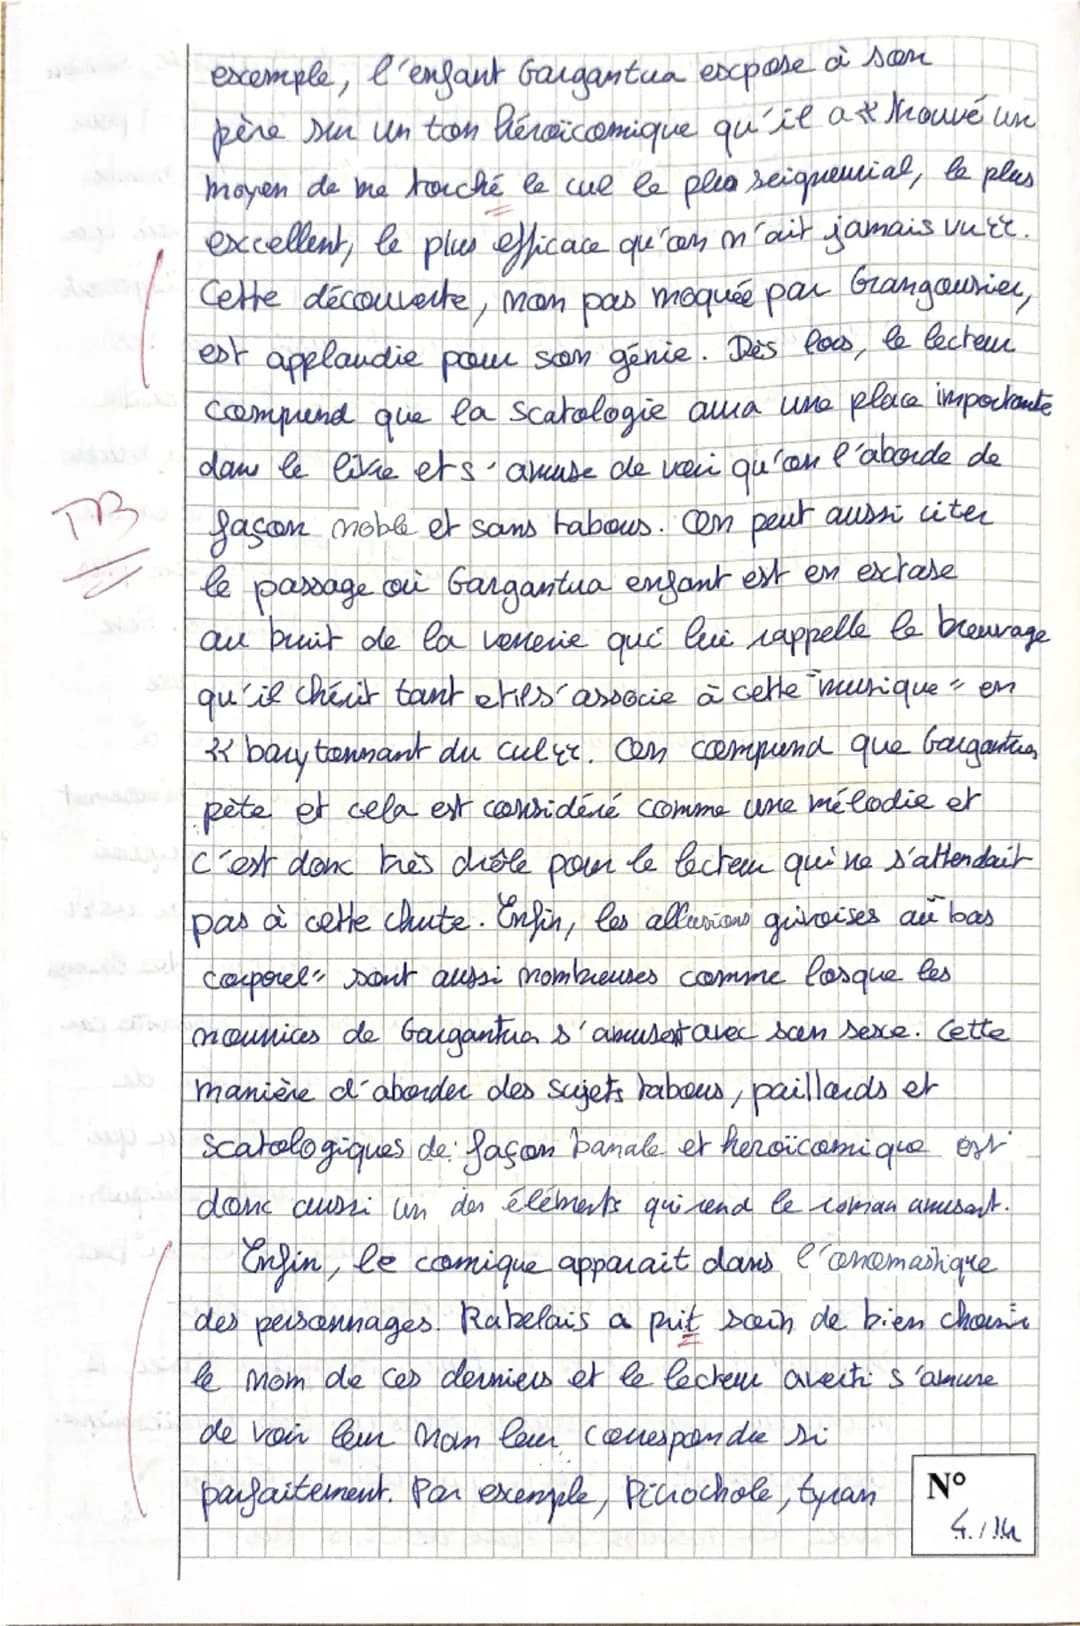 exemple, l'enfant Gargantua expose à son
père sur un ton héroïcomique qu'il a « trouvé un
moyen de me torché le cul le plus seigneurial, le plus
excellent, le plus efficace qu'on n'ait jamais vu ».
Cette découverte, non pas moquée par Grangousier,
est applaudie pour son génie. Dès lors, le lecteur
comprend que la scatologie aura une place importante
dans le livre et s'amuse de voir qu'on l'aborde de
TB
façon noble et sans tabous. On peut aussi citer
le passage où Gargantua enfant est en extase
au bruit de la verrerie qui lui rappelle le breuvage
qu'il chérit tant et il s'associe à cette "musique" en
« barytonnant du cul ». On comprend que Gargantua
pète et cela est considéré comme une mélodie et
c'est donc très drôle pour le lecteur qui ne s'attendait
pas à cette chute. Enfin, les allusions grivoises au "bas
corporel" sont aussi nombreuses comme losque les
nourrices de Gargantua s'amusent avec son sexe. Cette
manière d'aborder des sujets tabous, paillards et
scatologiques de façon banale et heroïcomique est
donc aussi un des éléments qui rend le roman amusant.
Enfin, le comique apparait dans l'onomastique
des personnages. Rabelais a prit soin de bien choisir
le nom de ces derniers et le lecteur averti s'amuse
de voir leur nom leur correspondre si
parfaitement. Par exemple, Picrochole, tyran
N°
4./14